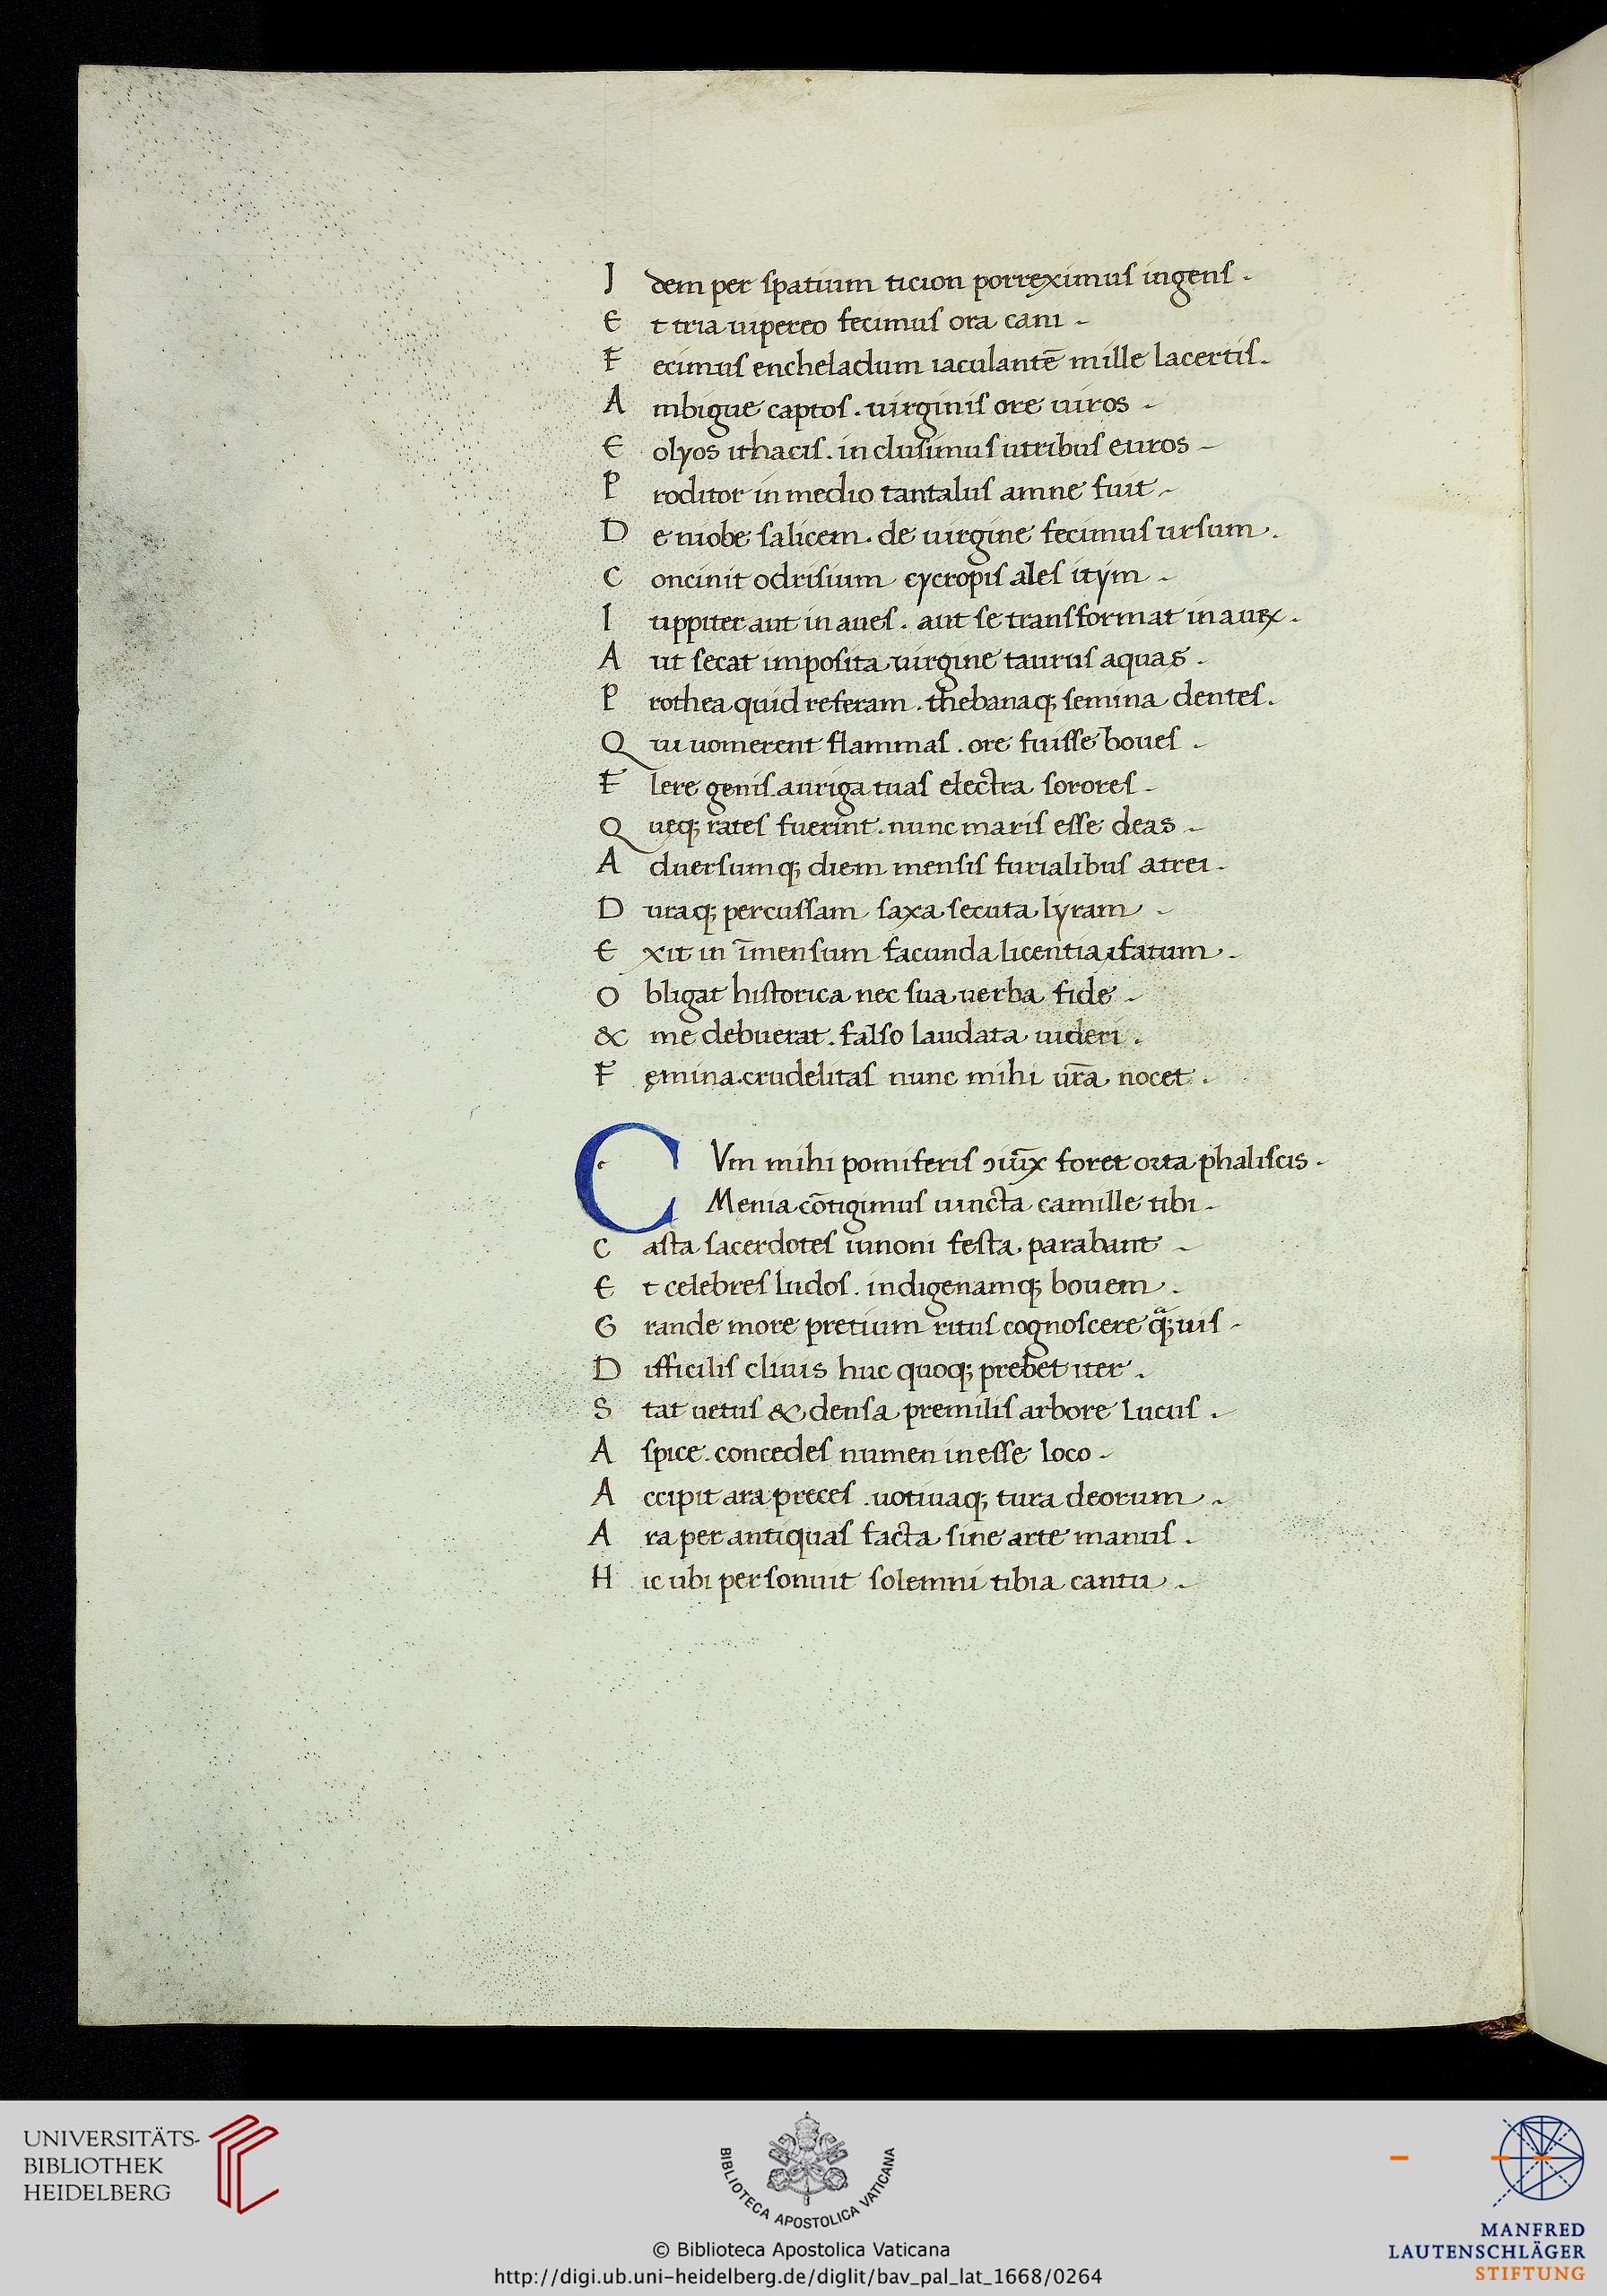 I dem per spatium ticion porreximus ingens .
E t tria uipereo fecimus ora cani .
F ecimus encheladum iaculantē mille lacertis .
A mbigue captos . uirginis ore uiros .
E olyos ithacis . in clusimus utribus euros .
P roditor in medio tantalus amne fuit .
D e niobe salicem . de uirgine fecimus ursum .
C oncinit odrisium cycropis ales itym .
I uppiter aut in aues . aut se transformat in auꝝ .
A ut secat imposita uirgine taurus aquas .
P rothea quid referam . thebanaq; semina dentes .
Q ui uomerent flammas . ore fuisse boues .
F lere genis auriga tuas electra sorores .
Q ueq; rates fuerint . nunc maris esse deas .
A duersumq; diem mensis furialibus atrei .
D uraq; percussam saxa secuta lyram .
E xit in īmensum facunda licentia ifatum .
O bligat historica nec sua uerba fide .
& me debuerat . falso laudata uideri .
F ęmina . crudelitas nunc mihi ur̄a nocet .
C Vm mihi pomiferis ɔiūx foret orta phaliscis .
Menia cōtigimus uincta camille tibi .
C asta sacerdotes iunoni festa parabant .
E t celebres ludos . indigenamq; bouem .
G rande more pretium ritus cognoscere qᵃ;uis .
D ifficilis cliuis huc quoq; prebet iter .
S tat uetus & densa premilis arbore lucus .
A spice . concedes numen inesse loco .
A ccipit ara preces . uotiuaq; tura deorum .
A ra per antiquas facta sine arte manus .
H ic ubi personuit solemni tibia cantu .
UNIVERSITÄTS-
BIBLIOTHEK
HEIDELBERG
BIBLIOTECA APOSTOLICA VATICANA
MANFRED
LAUTENSCHLÄGER
STIFTUNG
© Biblioteca Apostolica Vaticana
http://digi.ub.uni-heidelberg.de/diglit/bav_pal_lat_1668/0264